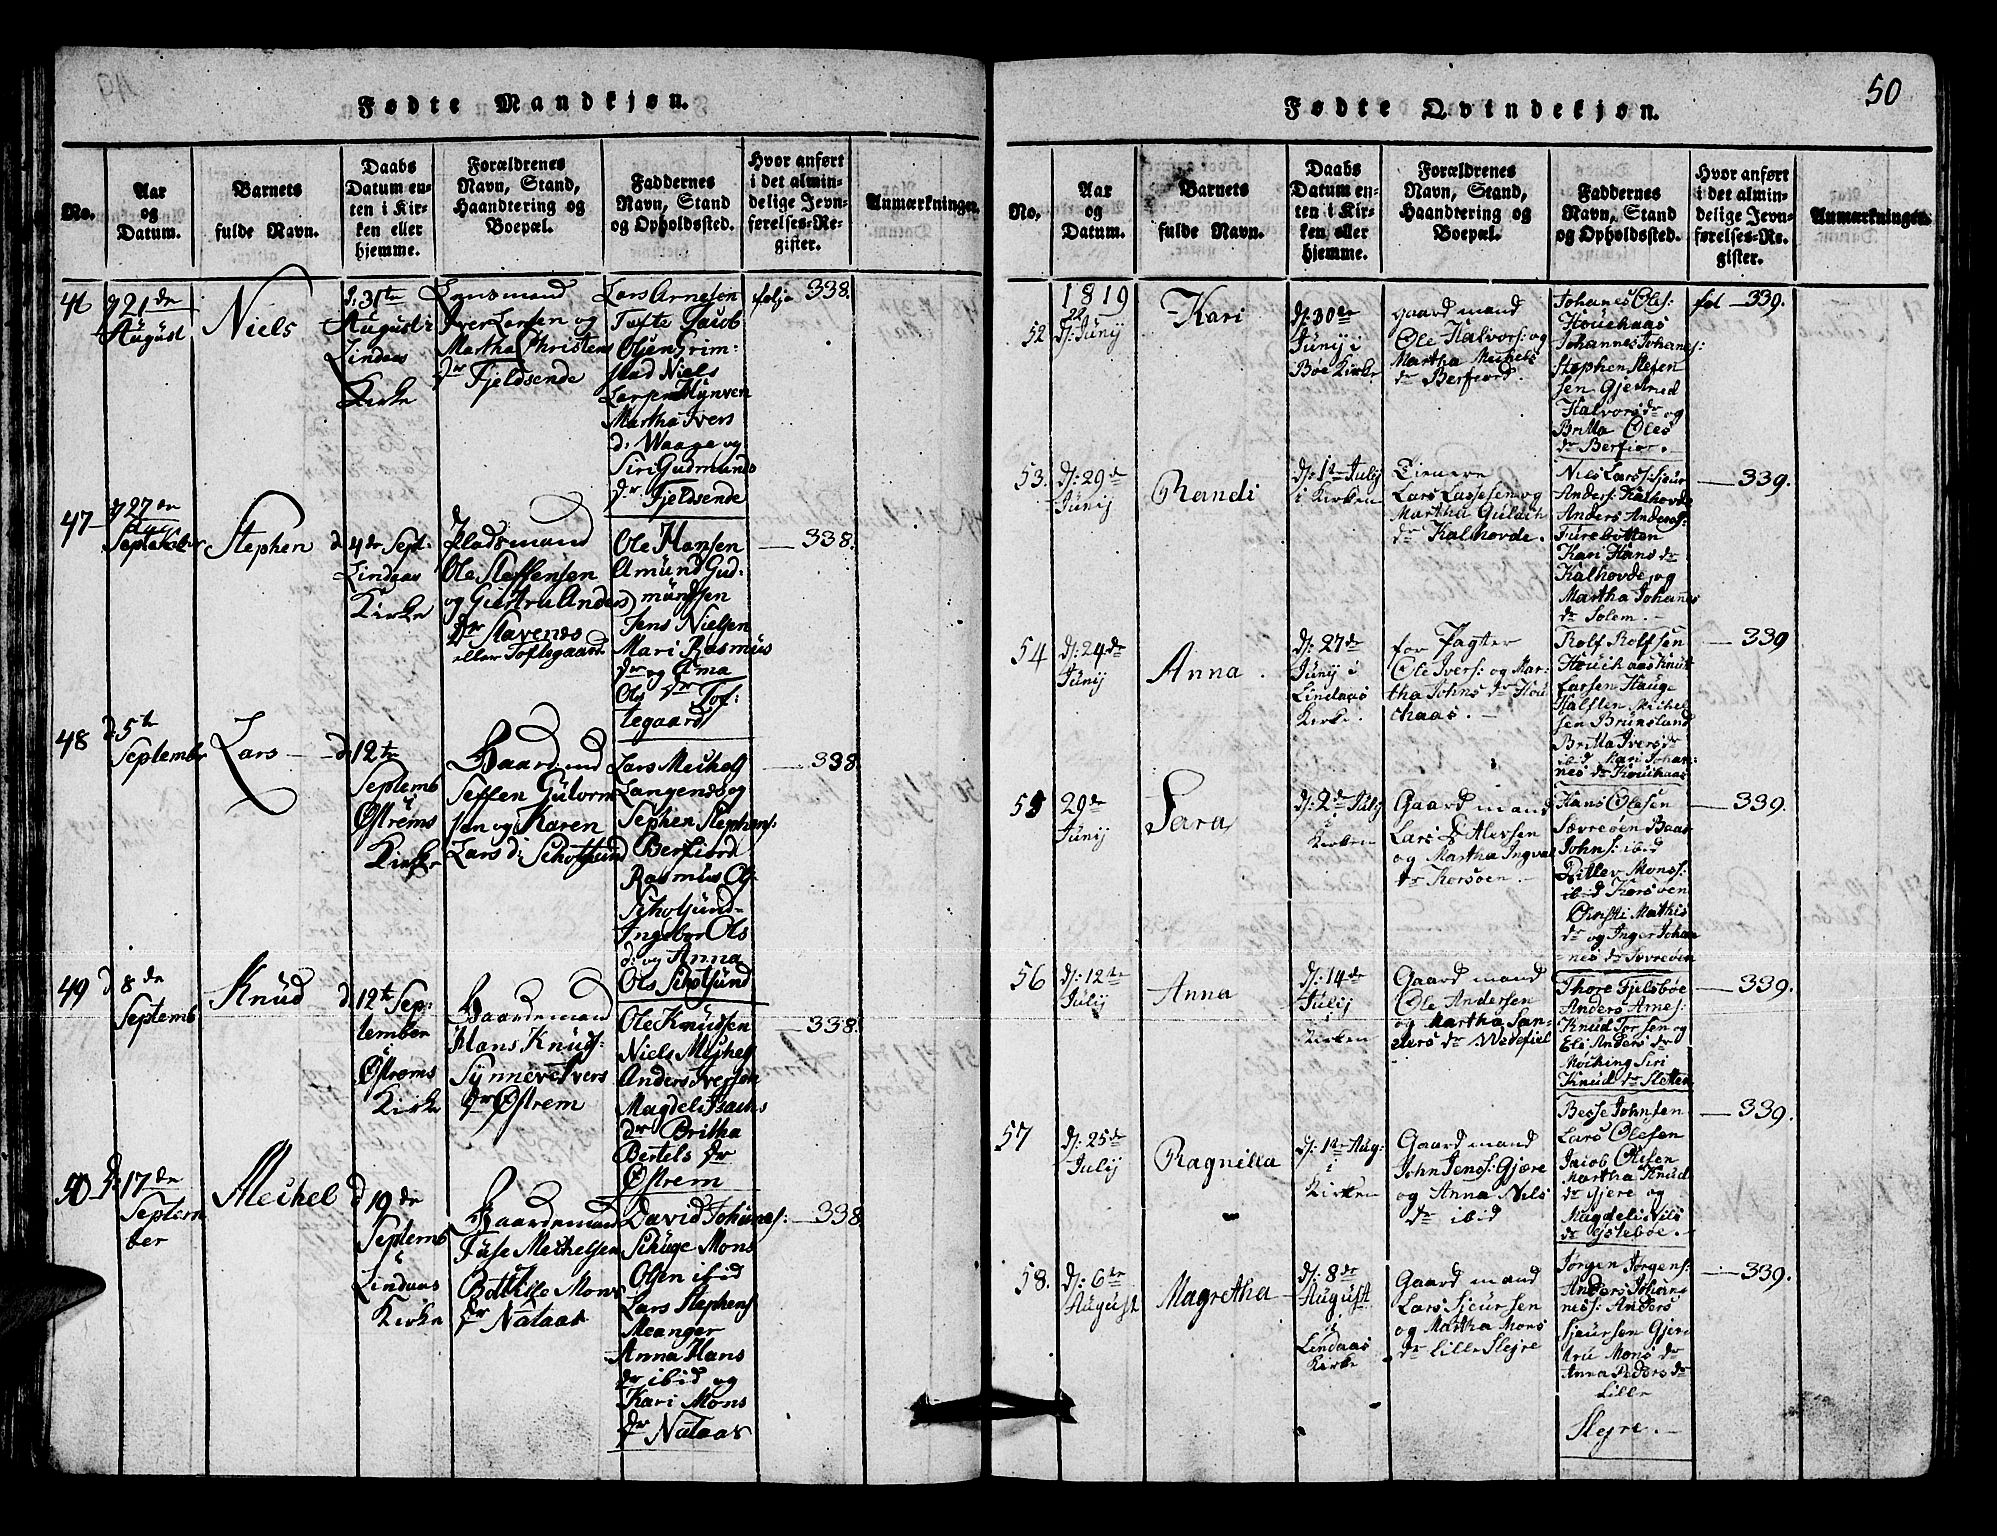 50
Fødte Mandkjøn.
No.
Aar
og
Datum.
Barnets
fulde Navn.
Daabs
Datum en-
ten i Kir-
ken eller
hjemme.
Forældrenes
Navn, Stand,
Haandtering og
Boepæl.
Faddernes
Navn, Stand
og Opholdssted.
Hvor anført
i det almin-
delige Jevn-
førelses-Re-
gister.
Anmærkninger.
46
21de
August
Niels
31te
August i
Lindaas
Kirke
Lensmand
Iver Larsen og
Martha Christens
dr Fjeldsende
Lars Arnesen
Tofte Jacob
Olsen Grim-
stad Niels
Larsen Hynven
Martha Ivers
d: Waage og
Siri Gudmunds
dr Fjeldsende
folje 338.
47
27de
Stephen
d 4de Sept:
Lindaas
Kirke
Pladsmand
Ole Steffensen
og Giertru Anders
dr Stavenes
eller Toftegaard
Ole Hansen
Amund Gud-
mundsen
Jens Nielsen
Mari Rasmus
dr og Ema
Ols dr Tof-
tegaard
338.
48
d 5te
September
Lars
d 12te
Septemb
Østrems
Kirke
Gaardmand
Steffen Guttorm
sen og Karen
Lars d: Schotsund
Lars Mechel
Langenes og
Stephen Stephens:
Berfiord
Rasmus Ol-
Schotsund-
Ingebor Ols
d: og Anna
Ols Schotsund
338.
49
d 8de
Septemb
Knud
d 12te Sep-
tember
i
Østrems
Kirke
Gaardemand
Hans Knud-
Synneve Ivers
dr Østrem
Ole Knudsen
Niels Mechel
Anders Iversen
Magdeli Isachs
dr Britha
Bertels dr
Østrem
338.
50
d: 17de
Septem
ber
Mechel
d 19de
Septemb
i
Lindaas
Kirke
Gaardemand
Mechelsen
Mons
dr Nataas
David Johanes:
Schuge Mons
Olsen ibid
Lars Stephens
Meanger
Anna Hans
dr ibid og
Kari Mons
dr Nataas
338
Fødte Qvindekjøn.
No.
Aar
og
Datum.
Barnets
fulde Navn.
Daabs
Datum en-
ten i Kir-
ken eller
hjemme.
Forældrenes
Navn, Stand,
Haandtering og
Boepæl.
Faddernes
Navn, Stand
og Opholdssted.
Hvor anført
i det almin-
delige Jevn-
førelses-Re-
gister.
Anmærkninger.
1819
52
d: 22 Junij
Kari
d: 30te
Junij i
Bøe Kirke
gaard mand
Ole Halvors: og
Martha Mechels
dr Berfiord.
Johanes Oles:
Houchaas
Johannes Johanes:
Stephen Stefen
sen Gjestned
Halvors dr og
Britta Oles
dr Berfior.
fol 339.
53.
d: 29de
Junij
Randi
d: 1te July
i Kirken
Lars Lassesen og
Martha Guldch
dr Kalhovde.
Niels Lars: Sjeur
Anders: Kalhovde
Anders Anders:
Turebotten
Kari Hans dr
Kalhovde og
Martha Johanes
dr Solem.
339.
54
d: 24de
Junij
Anna.
d: 27de
Junij i
Lindaas
Kirke.
for Pagter
Ole Ivers: og Mar:
tha Johns dr Hou
chaas.
Rolf Rolfsen
Houchaas Knut
Larsen Hauge
Halsten Michel
sen Brunsland
Britta Ivers dr
ibid Mari Johan-
nes dr Houchaas
339
55
29de
Junij
Sara
d: 2de July
i
Kirken
Gaard mand
Lars Ditlevsen
og Martha Ingval
dr Korsøen.
Hans Olesen
Sævreøen Baar
Johns: ibid
Ditlev Mons:
ibid Korsøen
Christi Mathis
dr og Inger Johan
nes dr Sævreøen
339.
56
d: 12te
Julij
Anna
d: 14de
Julij
i
Kirken
Gaard mand
Ole Andersen
og Martha San-
ders dr Wedefiel
Thore Fjelsbøe
Anders Arnes:
Knud Torsen og
Eli Anders dr
Nøthing Siri
Knud dr Sletten
339.
57
d: 25de
Julij
Ragnilla
d: 1te Aug:
i
Kirken
Gaard mand
John Jens: Gjære
og Anna Niels
dr ibid
Besse Johnsen
Lars Olesen
Jacob Olesen
Martha Knud
dr Gjere og
Magdeli Nils
dr Kjøtebøe.
339.
58.
d: 6te
August
Magretha
d: 8de
August
i
Lindaas
Kirke
Gaard mand
Lars Sjeursen
og Martha Mons
dr Lille Slejre
Jørgen Jørgens:
Anders Johan
nes: Anders
Sjeursen Gjer
Mons dr
Anna Peders dr
Lille
Slejre.
339.